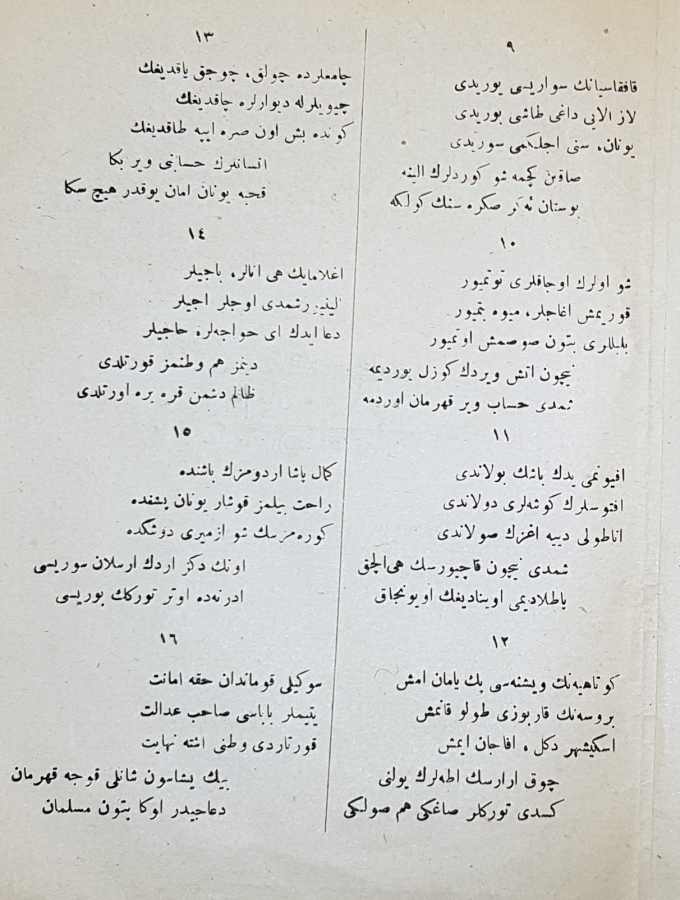 ٩
قافقاسيانك سواريسى يوريدى
لاز الايى داغى طاشى بوريدى
يونان، سنى اجلكمى سوريدى
صاقين كچمه شو كوردلرك الينه
بوستان ئه كر صكره سنك كولكه
١٠
شو اولرك اوجاقلرى توتميور
قوريمش اغاجلر، ميوه بتميور
بلبللرى بتون صوصمش اوتميور
نيچون اتش ويردك كوزل يورديمه
شمدى حساب وير قهرمان اوردمه
١١
افيونمى يدك باشك بولاندى
افتوسلرك كوشه لرى دولاندى
اناطولى دييه اغزك صولاندى
شمدى نيچون قاچيورسك هى الچق
پاطلاديمى اوينادیغك اويونجاق
١٢
كوتاهيه نك ويشنه سى پك يامان امش
بروسه نك قارپوزى طولو قانمش
اسكيشهر دكل ، افاجان ايمش
چوق ارارسك اطه لرك يولنى
كسدى توركلر صاغكى هم صولكى
١٣
جامعلرده چولق، چوجق ياقديغك
چيويلرله ديوارلره چاقديغك
كونده بش اون صره ايپه طاقديغك
انسانلرك حسابنى وير بكا
قحبه يونان امان يوقدر هيچ سكا
١٤
اغلامايك هى انالر، باجيلر
شمدى اوجلر اجيلر
دعا ايدك اى خواجه لره حاجيلر
دينمز هم وطنمز قورتلدى
ظالم دشمن قره يره اورتلدى
١٥
كمال پاشا اردومزك باشنده
راحت بيلمز قوشار يونان پشنده
كوره مزسك شو ازميرى دوشكده
اونك دكز اردك ارسلان سوريسى
ادرنه ده اوتر توركك بوريسى
١٦
سوكيلى قوماندان حقه امانت
يتيملر باباسى صاحب عدالت
قورتاردى وطنى اشته نهايت
بيك يشاسون شانلى قوجه قهرمان
دعاجيدر اوكا بتون مسلمان